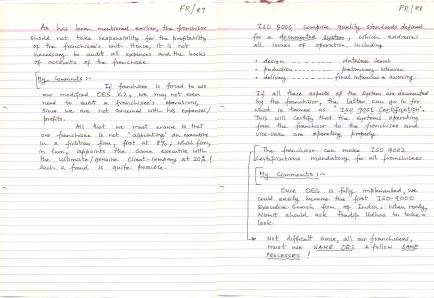 FR/87
As has been mentioned earlier, the franchisor
should not take responsibility for the profitability
of the franchisee's unit. Hence, it is not
necessary to audit all expenses and the books
of accounts of the franchisee.
My Comments :-
If franchisee is forced to use
our modified OES V.2, we may not even
need to audit a franchisee's operations,
since we are not concerned with his expenses/
profits.
All that we must ensure is that
our franchisee is not "appointing" an executive
in a fictitious firm, first at 8%; which firm,
in turn, appoints the same executive with
the ultimate/genuine client-company at 20%!
Such a fraud is quite possible.
FR/88
ISO 9000 comprise quality standards defined
for a documented system, which addresses
all issues of operation, including
• design --------- database search
• production --------- preliminary interview
• delivery --------- final interview &
If all these aspects of the system are documented
by the franchisor, the latter can go in for
what is termed as "ISO 9001 Certification".
This will certify that the systems operating
from the franchisor to the franchisee and
vice-versa are operating properly.
The franchisor can make ISO 9002
Certifications mandatory for all franchisees.
My Comments :-
Once OES is fully implemented, we
could easily become the first ISO-9000
Executive Search firm of India. When ready,
should ask to take a
look.
Not difficult since, all our franchisees,
must use SAME OES & follow SAME
PROCESSES !